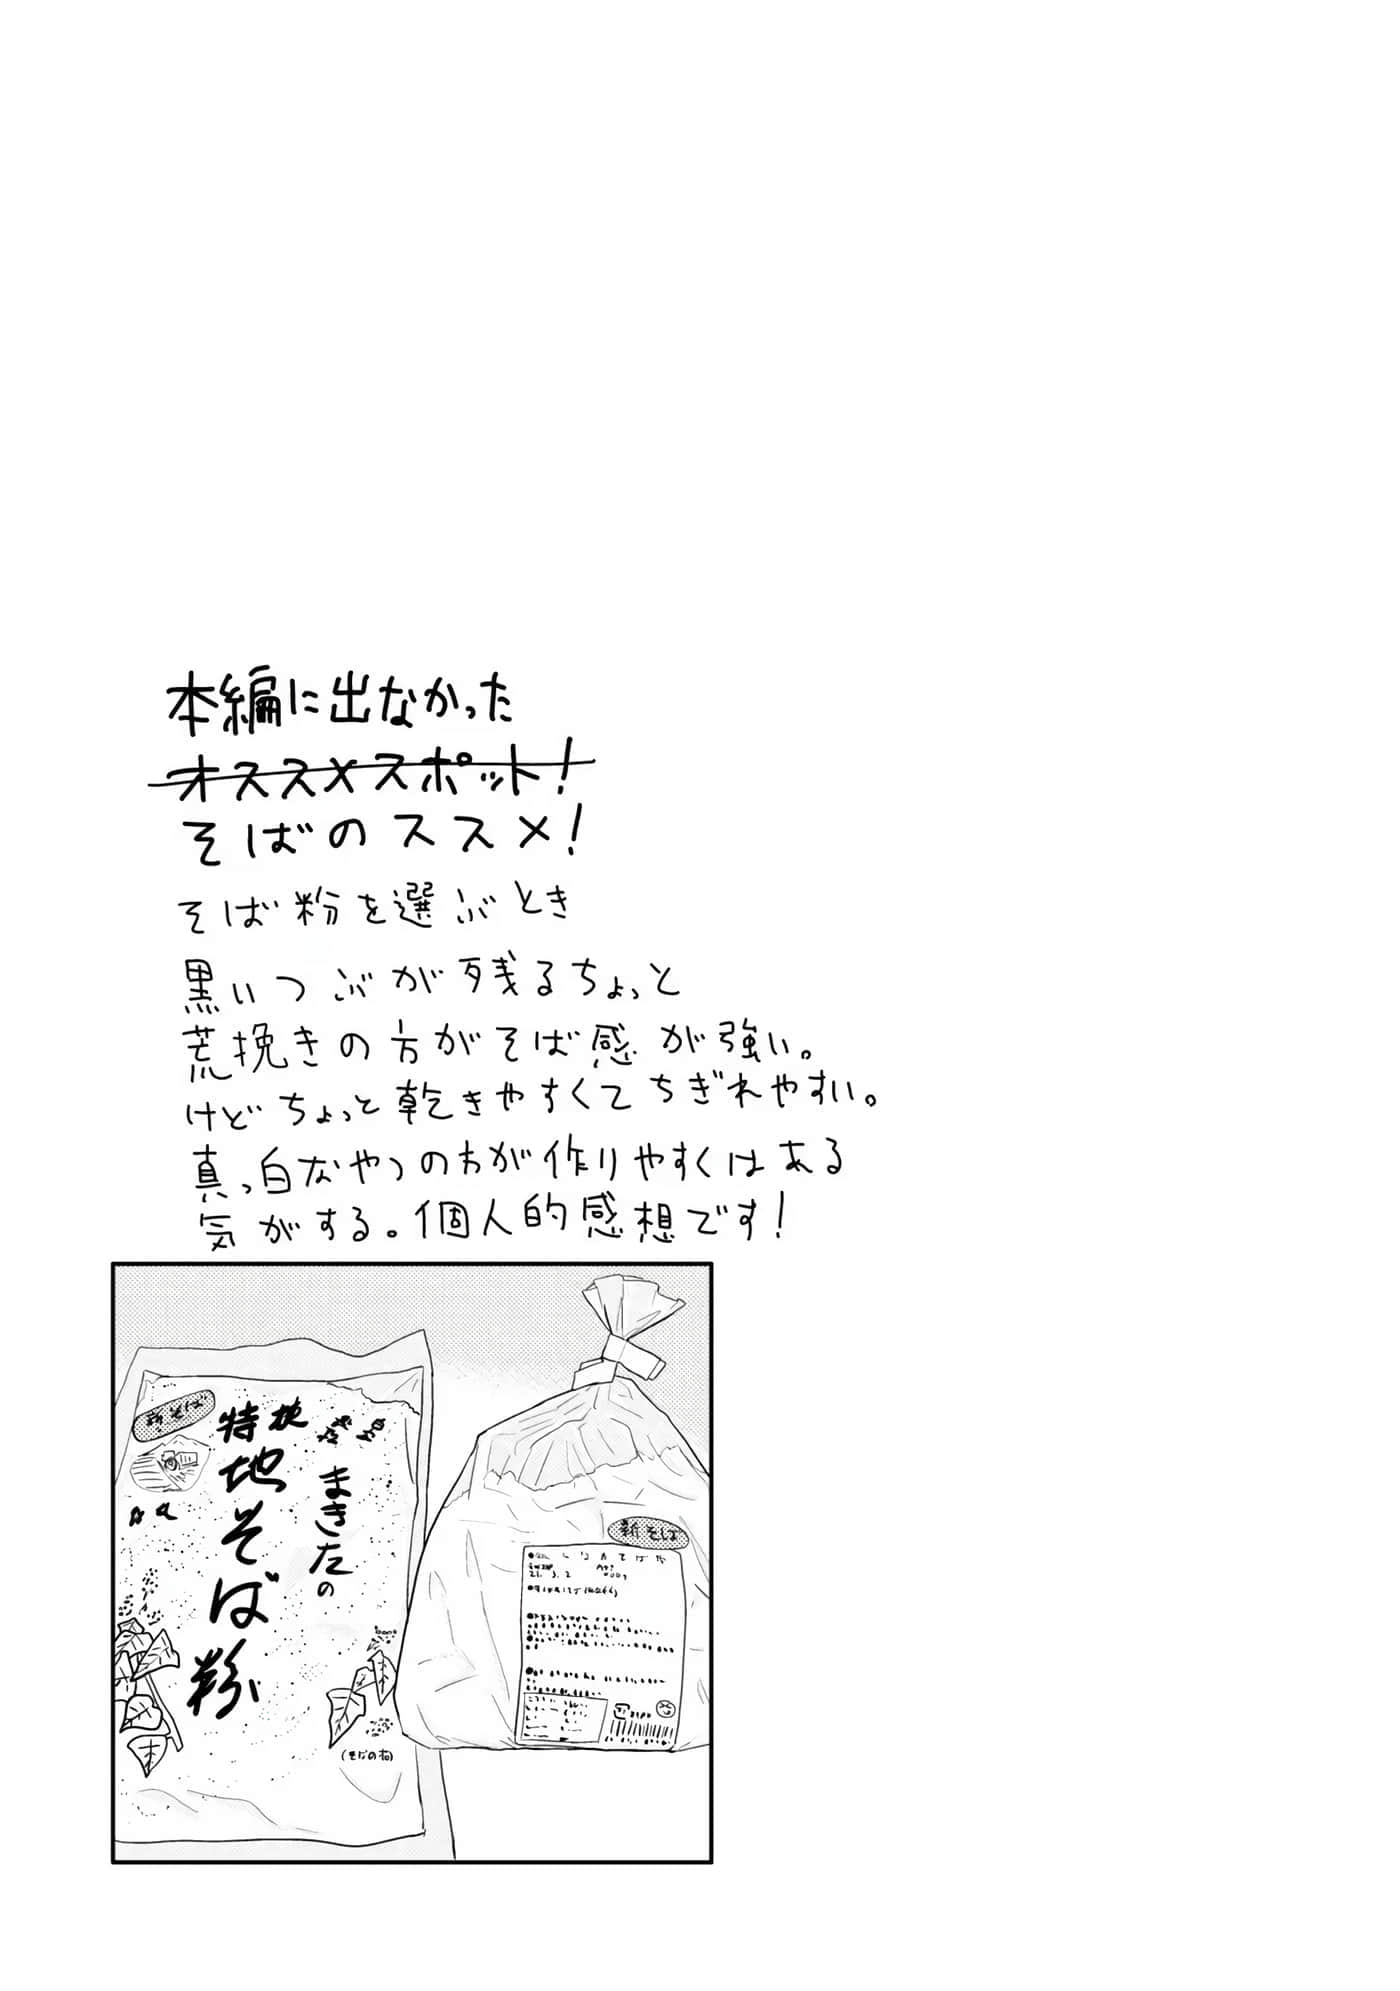 本編に出なかった
オススメスポット!
そばのススメ!
そば粉を選ぶとき
黒いつぶが残るちょっと
荒挽きの方がそば感が強い。
けどちょっと乾きやすくてちぎれやすい。
真っ白なやつの方が作りやすくはある
気がする。個人的感想です!
新そば
まきたの
特挽
地そば粉
(そばの花)
新そば